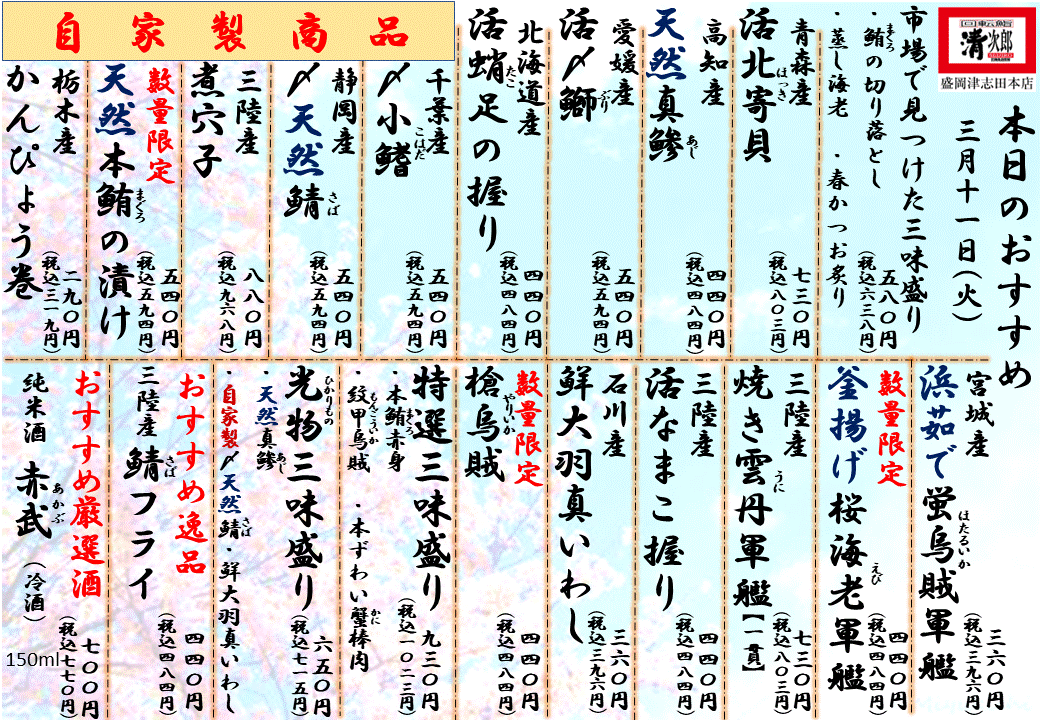 回転鮨
清次郎
盛岡津志田本店
本日のおすすめ
三月十一日(火)
市場で見つけた三味盛り
・鮪の切り落とし
まぐろ
・蒸し海老 ・春かつお炙り
五八〇円
(税込六三八円)
青森産
活北寄貝
ほっき
七三〇円
(税込八〇三円)
高知産
天然真鯵
あじ
四四〇円
(税込四八四円)
愛媛産
活〆鰤
ぶり
五四〇円
(税込五九四円)
北海道産
活蛸足の握り
たこ
四四〇円
(税込四八四円)
自家製商品
千葉産
〆小鰭
こはだ
五四〇円
(税込五九四円)
静岡産
〆天然鯖
さば
五四〇円
(税込五九四円)
三陸産
煮穴子
八八〇円
(税込九六八円)
数量限定
天然本鮪の漬け
まぐろ
五四〇円
(税込五九四円)
栃木産
かんぴょう巻
二九〇円
(税込三一九円)
宮城産
浜茹で蛍烏賊軍艦
ほたるいか
三六〇円
(税込三九六円)
数量限定
釜揚げ桜海老軍艦
えび
四四〇円
(税込四八四円)
三陸産
焼き雲丹軍艦【一貫】
うに
七三〇円
(税込八〇三円)
三陸産
活なまこ握り
四四〇円
(税込四八四円)
石川産
鮮大羽真いわし
三六〇円
(税込三九六円)
数量限定
槍烏賊
やりいか
四四〇円
(税込四八四円)
特選三味盛り
・本鮪赤身
まぐろ
・紋甲烏賊 ・本ずわい蟹棒肉
もんこういか
かに
九三〇円
(税込一〇二三円)
光物三味盛り
ひかりもの
・天然真鯵
あじ
・自家製〆天然鯖・鮮大羽真いわし
さば
六五〇円
(税込七一五円)
おすすめ逸品
三陸産 鯖フライ
さば
四四〇円
(税込四八四円)
おすすめ厳選酒
純米酒 赤武 (冷酒)
あかぶ
150ml
七〇〇円
(税込七七〇円)